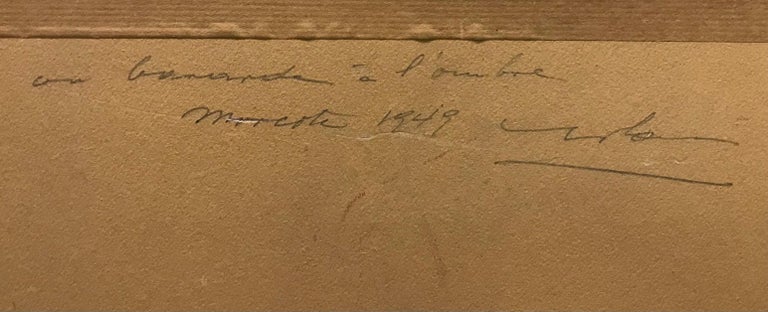 on bavarde à l'ombre
Morcote 1949